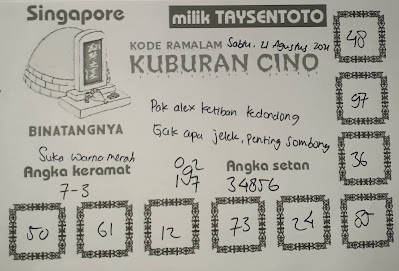 Singapore
milik TAYSENTOTO
KODE RAMALAM Sabtu, 21 Agustus 2021
KUBURAN CINO
48
Pak alex ketiban kedondong
97
BINATANGNYA
Gak apa jelek, penting sombong
Suka warna merah
092
Angka setan
36
Angka keramat
7-3
34856
50
61
12
73
24
85